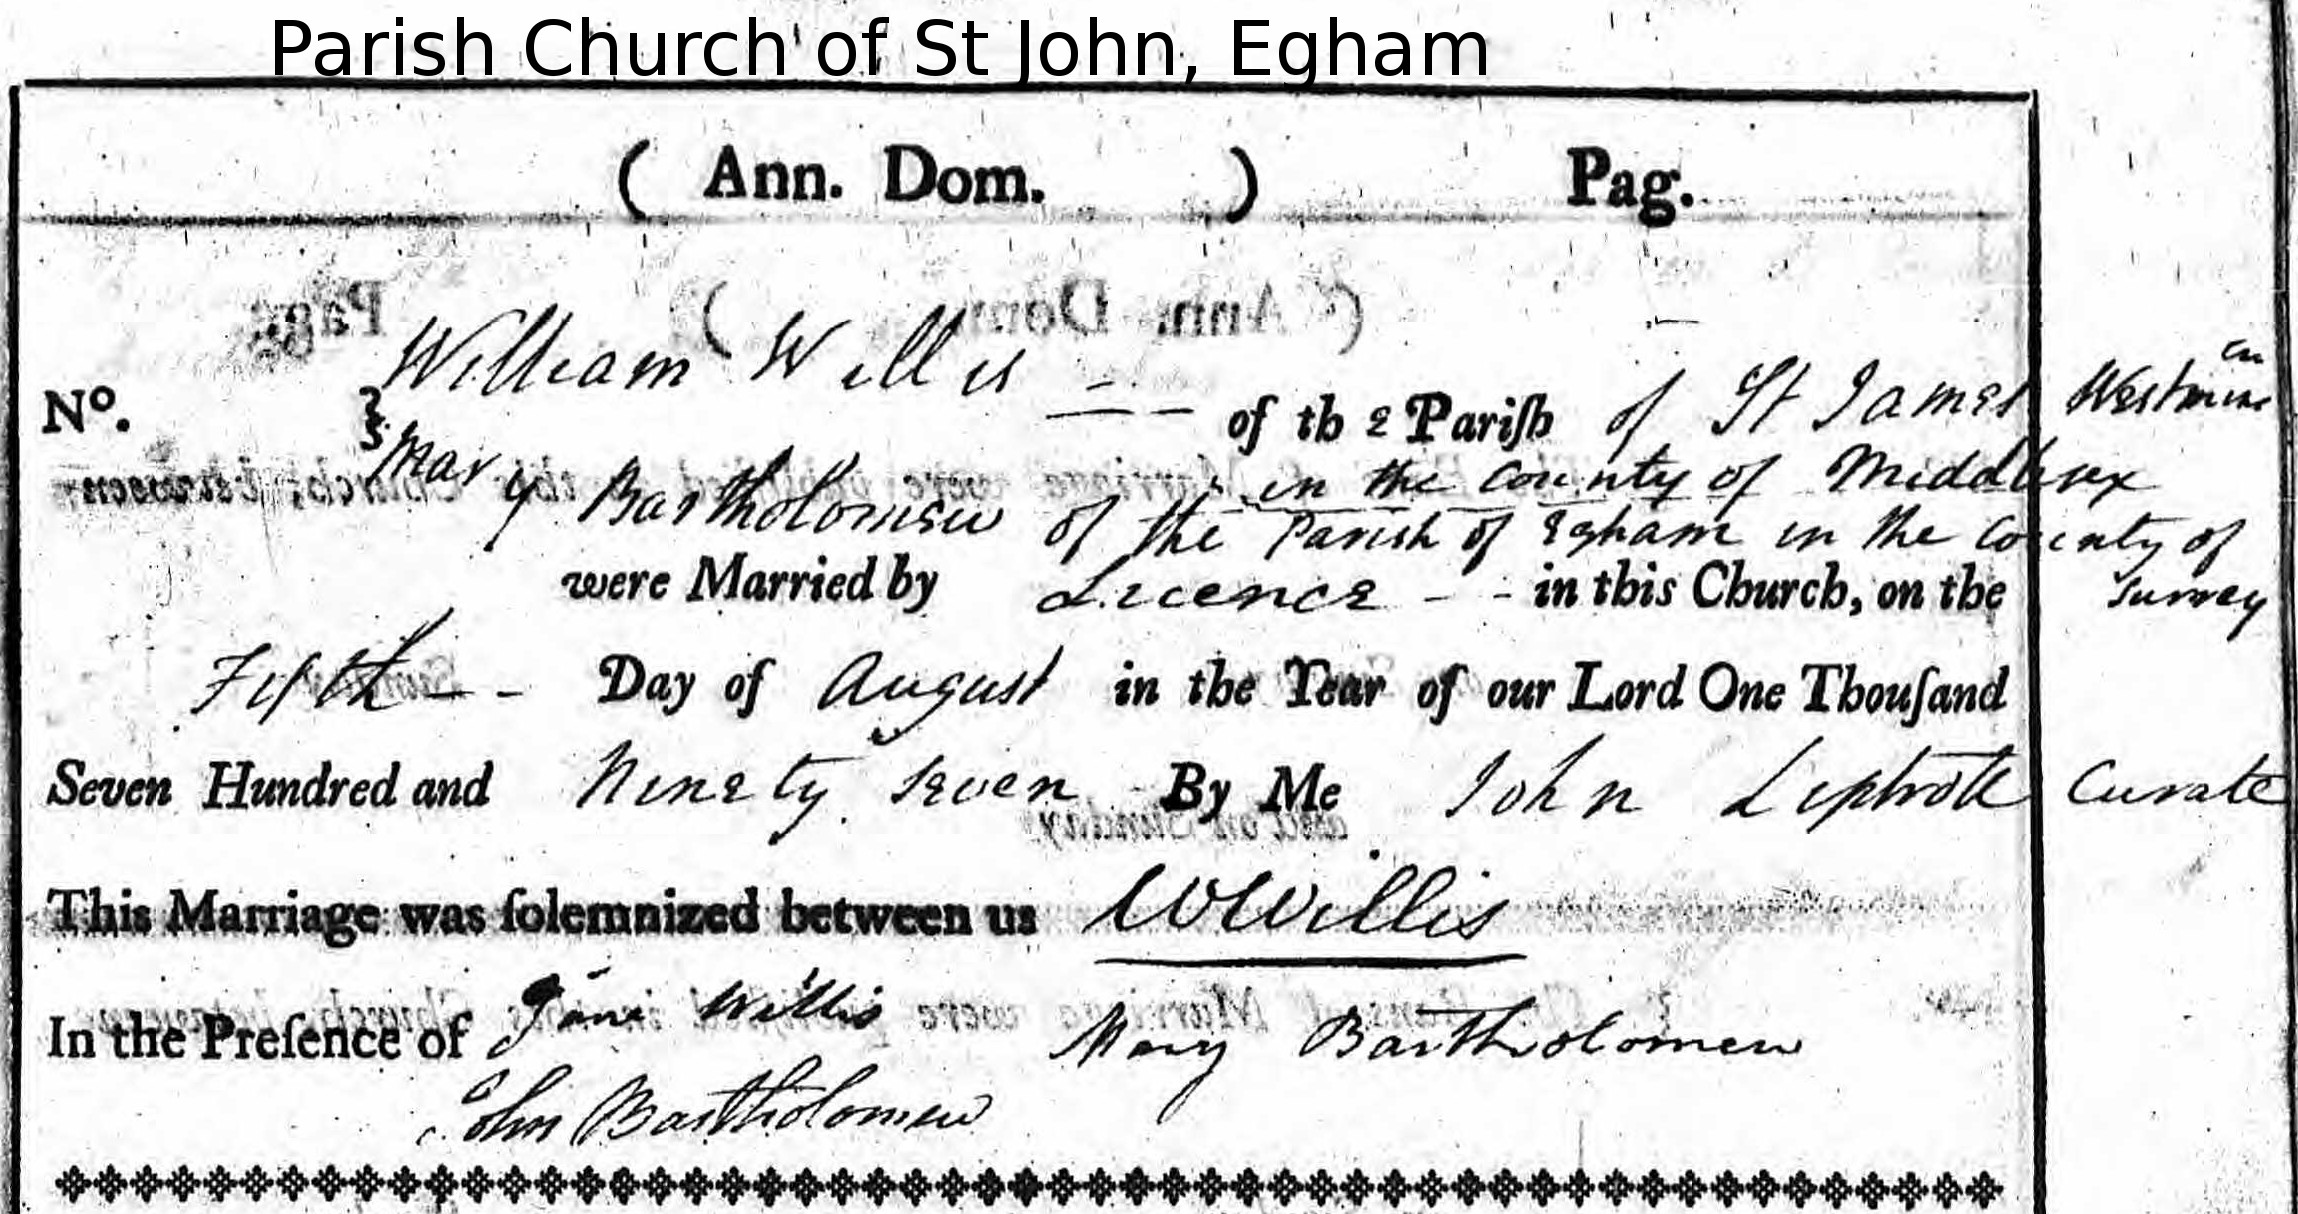 Parish Church of St John, Egham
( Ann. Dom. ) Pag.
William Willis
No. of the Pariſh of St James Westmins
Mary Bartholomew in the County of Middlesex
of the Parish of Egham in the County of
were Married by Licence - - in this Church, on the Surrey
Fifth - - Day of August in the Year of our Lord One Thouſand
Seven Hundred and Ninety Seven By Me John Liptrott Curate
This Marriage was ſolemnized between us WWillis
In the Preſence of Jane Willis Mary Bartholomew
John Bartholomew